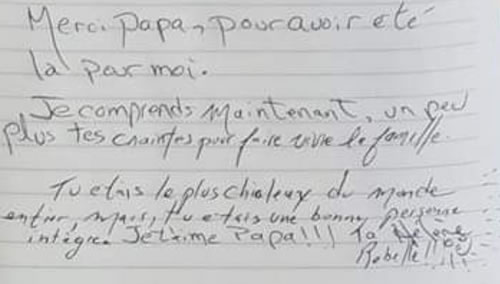 Merci papa, pour avoir été
là par moi.
Je comprends maintenant, un peu
plus tes craintes pour faire vivre la famille.
Tu étais le plus chialeux du monde
entier, mais, tu étais une bonne personne
intègre. Je t'aime Papa!!! Ta
Rebelle!!